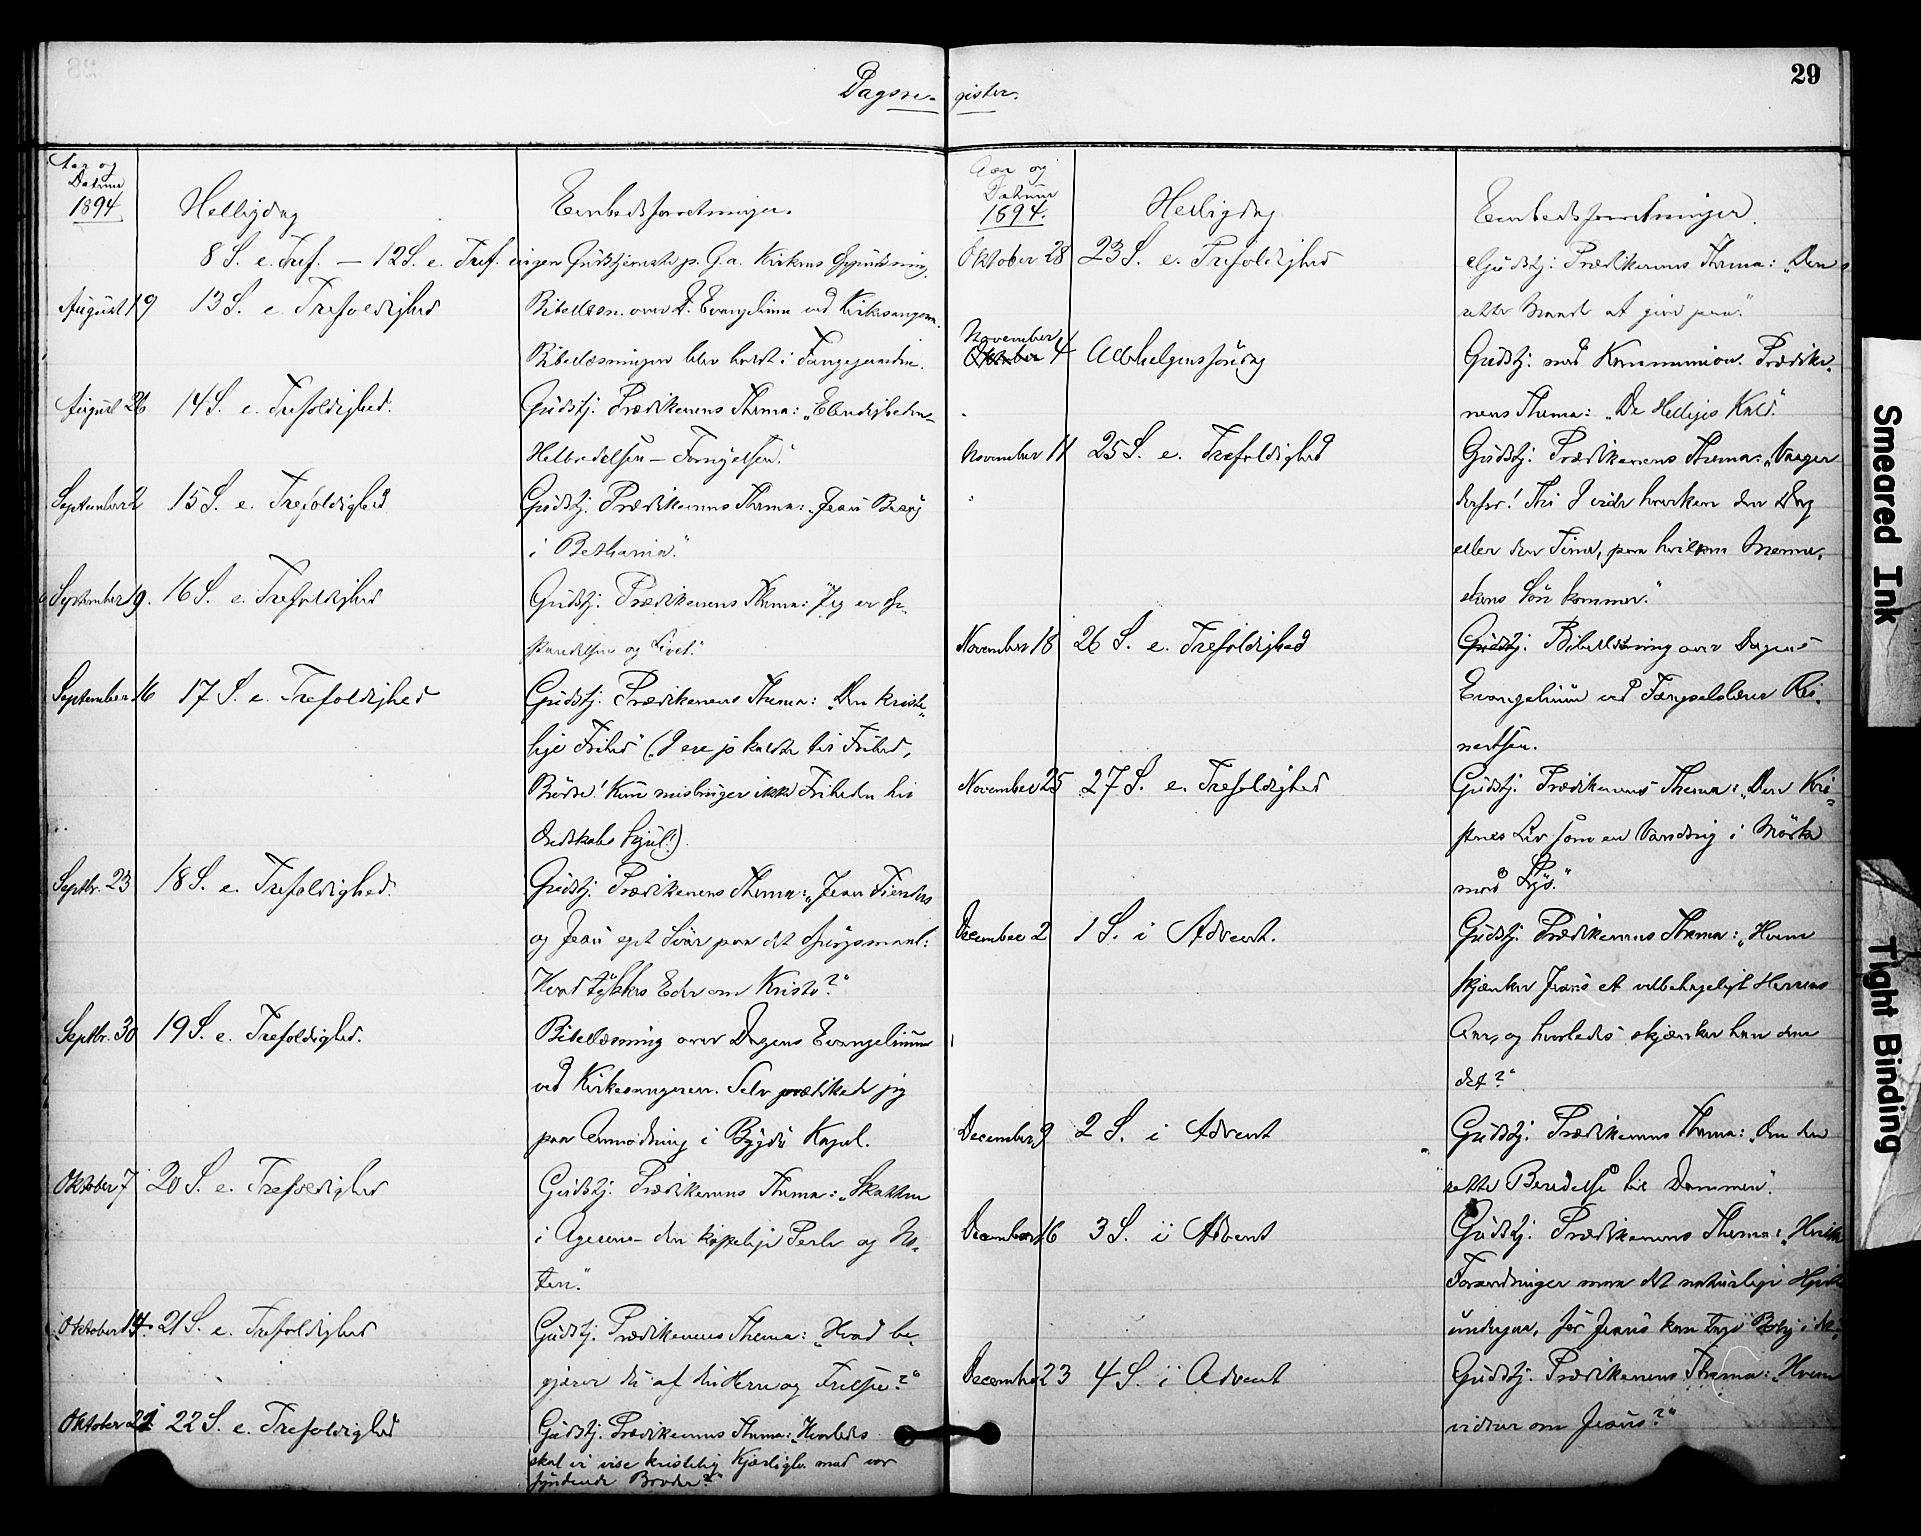 29
Dagsre-gister.
Aar og
Datum
1894
Helligdag
Embedsforretninger.
8 S. e. Tref. — 12 S. e. Tref. ingen Gudstjeneste p. G. a. Kirkens Oppudsning.
August 19 13 S. e. Trefoldighed Bibellæsn. over D. Evangelium ved Kirkesangeren.
Bibellæsningen blev holdt i
August 26 14 S. e. Trefoldighed. Gudstj. Prædikenens Thema: „Elendigheden-
Helbredelsen — Fornyelsen."
September 2 15 S. e. Trefoldighed Gudstj. Prædikenens Thema: „Jesu Besøg
i Bethania."
September 9. 16 S. e. Trefoldighed Gudstj. Prædikenens Thema: „Jeg er Op-
standelsen og Livet."
September 16 17 S. e. Trefoldighed Gudstj. Prædikenens Thema: „Den kriste-
lige Frihed" („I ere jo kaldte til Frihed,
Brødre! Kun misbruger ikke Friheden til
Ondskabs Skjul!)
Septbr. 23 18 S. e. Trefoldighed. Gudstj. Prædikenens Thema: „Jesu Fienders
og Jesu eget Svar paa det Spørgsmaal:
Hvad tykkes Eder om Kristo?"
Septbr. 30 19 S. e. Trefoldighed. Bibellæsning over Dagens Evangelium
ved Kirkesangeren. Selv prædikede jeg
paa Anmodning i Bygdø Kapel.
Oktober 7 20 S. e. Trefoldighed Gudstj. Prædikenens Thema: „Skatten
i Ageren – den kostelige Perle og No-
ten."
Oktober 14. 21 S. e. Trefoldighed Gudstj. Prædikenens Thema: „Hvad be-
gjærer du af din Herre og Frelser?"
Oktober 21 22 S. e. Trefoldighed Gudstj. Prædikenens Thema: „Hvorledes
skal vi vise kristelig Kjærlighed mod vor
syndende Broder?"
Aar og
Datum
1894.
Helligdag
Embedsforretninger.
Oktober 28 23 S. e. Trefoldighed Gudstj: Prædikenens Thema: „Den
rette Maade at give paa."
November
Oktober 4 Allehelgensøndag Gudstj. med Kommunion. Prædike-
nens Thema: „De Helliges Kald."
November 11 25 S. e. Trefoldighed Gudstj: Prædikenens Thema: „Vaager
derfor! Thi I vide hverken den Dag
eller den Time, paa hvilken Menne-
skens Søn kommer."
November 18 26 S. e. Trefoldighed Gudstj: Bibellæsning over Dagens
Evangelium ved Fængselslærer Rei-
nertsen.
November 25 27 S. e. Trefoldighed Gudstj. Prædikenens Thema: „Den Kri-
stnes Liv som en Vandring i Mørke
mod Lys."
December 2 1 S. i Advent. Gudstj. Prædikenens Thema: „Hvem
skjænker Jesus et velbehageligt Herrens
Aar, og hvorledes skjænker han dem
det?"
December 9 2 S. i Advent Gudstj: Prædikenens Thema: „Om den
rette Beredelse til Dommen".
December 16 3 S. i Advent Gudstj. Prædikenens Thema: „Hvilke
Forandringer maa det naturlige Hjerte
undergaa, før Jesus kan tage Bolig i det
December 23 4 S. i Advent Gudstj. Prædikenens Thema: „Hvem
vidner om Jesus?"
Smeared Ink
Tight Binding